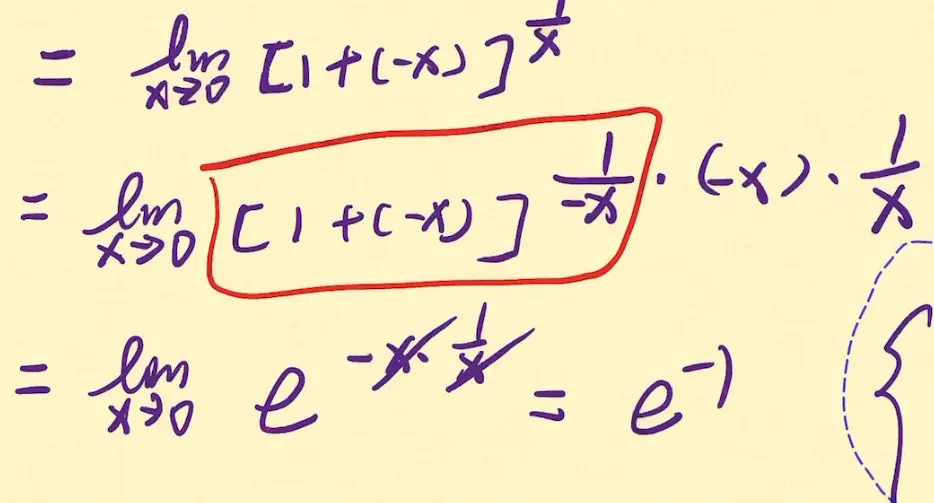 = lim x→0 [1+(-x)]^(1/x)
= lim x→0 [1+(-x)]^(1/(-x) · (-x) · 1/x)
= lim x→0 e^(-x · 1/x) = e^(-1)